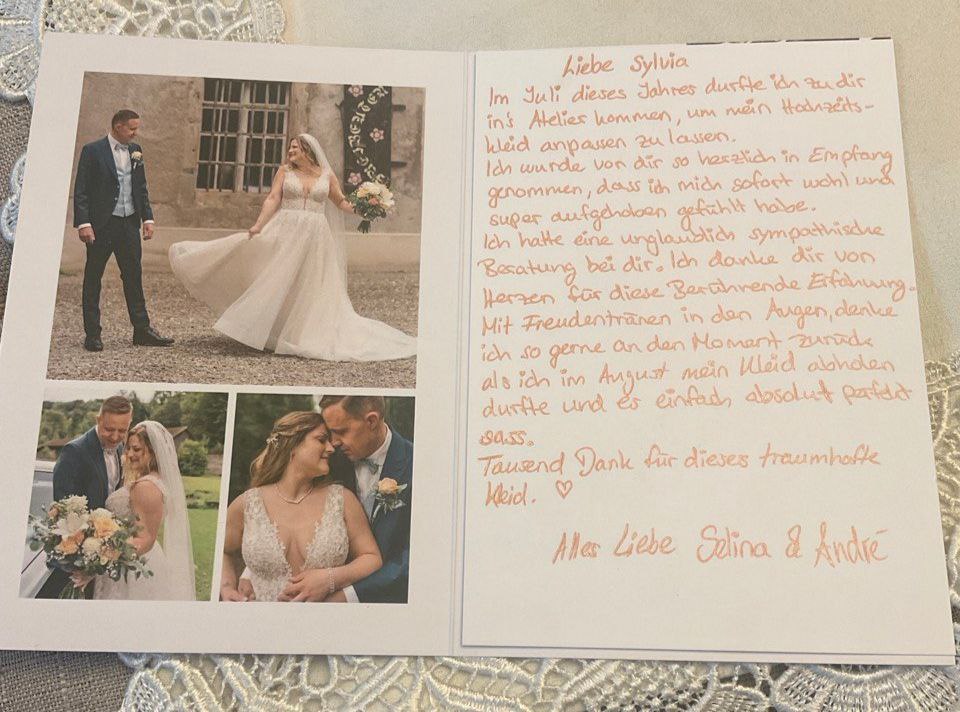 Liebe Sylvia
Im Juli dieses Jahres durfte ich zu dir
in's Atelier kommen, um mein Hochzeits-
kleid anpassen zu lassen.
Ich wurde von dir so herzlich in Empfang
genommen, dass ich mich sofort wohl und
super aufgehoben gefühlt habe.
Ich hatte eine unglaublich sympathische
Beratung bei dir. Ich danke dir von
Herzen für diese Berührende Erfahrung.
Mit Freudentränen in den Augen, denke
ich so gerne an den Moment zurück
als ich im August mein Kleid abholen
durfte und es einfach absolut perfekt
sass.
Tausend Dank für dieses traumhafte
Kleid. ♡
Alles Liebe Selina & André